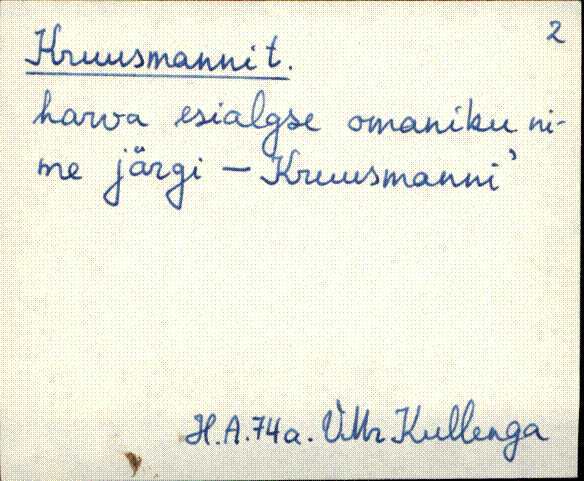 2
Kruusmanni t.
harva esialgse omaniku ni-
me järgi – Kruusmanni’
H.A.74a. VMr Kullenga